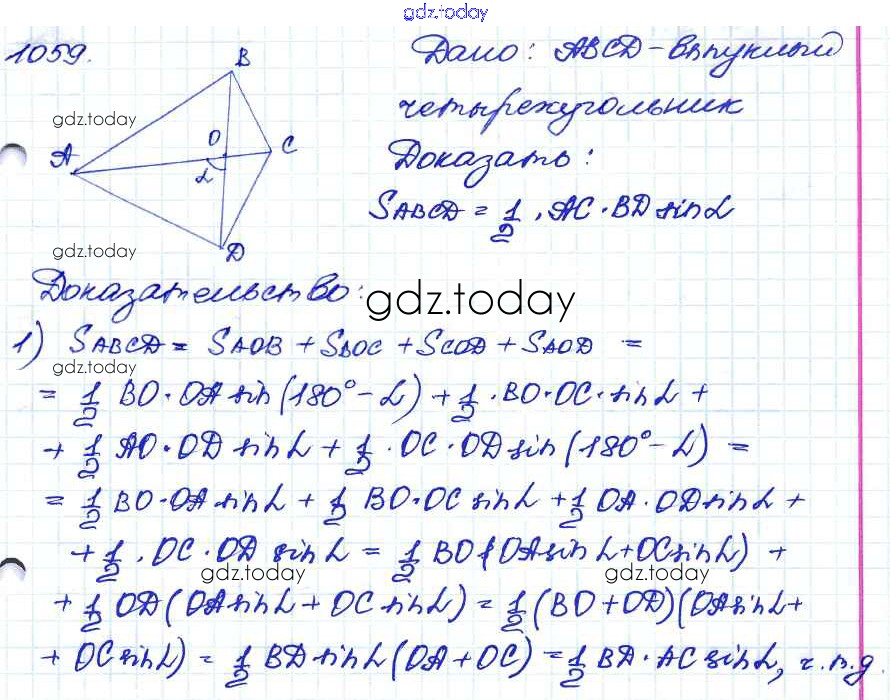 gdz.today
1059.
B
O
C
A
α
D
gdz.today
gdz.today
Дано: ABCD - выпуклый
четырехугольник
Доказать:
SABCD = 1/2 · AC · BD sin α
Доказательство:
gdz.today
1) SABCD = SAOB + SBOC + SCOD + SAOD =
gdz.today
= 1/2 BO · OA sin (180° - α) + 1/2 · BO · OC · sin α +
+ 1/2 AO · OD sin α + 1/2 · OC · OD sin (180° - α) =
= 1/2 BO · OA sin α + 1/2 BO · OC sin α + 1/2 OA · OD sin α +
+ 1/2 · OC · OD sin α = 1/2 BO (OA sin α + OC sin α) +
gdz.today
gdz.today
+ 1/2 OD (OA sin α + OC sin α) = 1/2 (BO + OD)(OA sin α +
+ OC sin α) = 1/2 BD sin α (OA + OC) = 1/2 BD · AC sin α, ч.т.д.